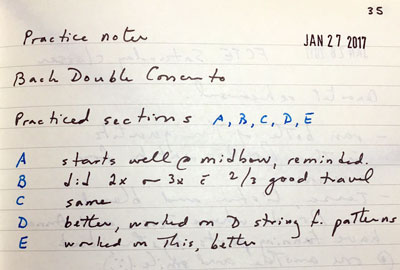 35
Practice notes JAN 27 2017
Bach Double Concerto
Practiced sections A, B, C, D, E
A starts well @ midbow, reminded.
B did 2x ~ 3x c̄ 2/3 good travel
C same
D better, worked on D string f. patterns
E worked on this, better